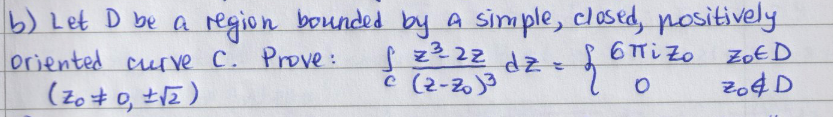 b) Let D be a region bounded by a simple, closed, positively
oriented curve C. Prove: ∫_C (z³-2z)/(z-z₀)³ dz = { 6πi z₀ z₀∈D
(z₀ ≠ 0, ±√2) 0 z₀∉D